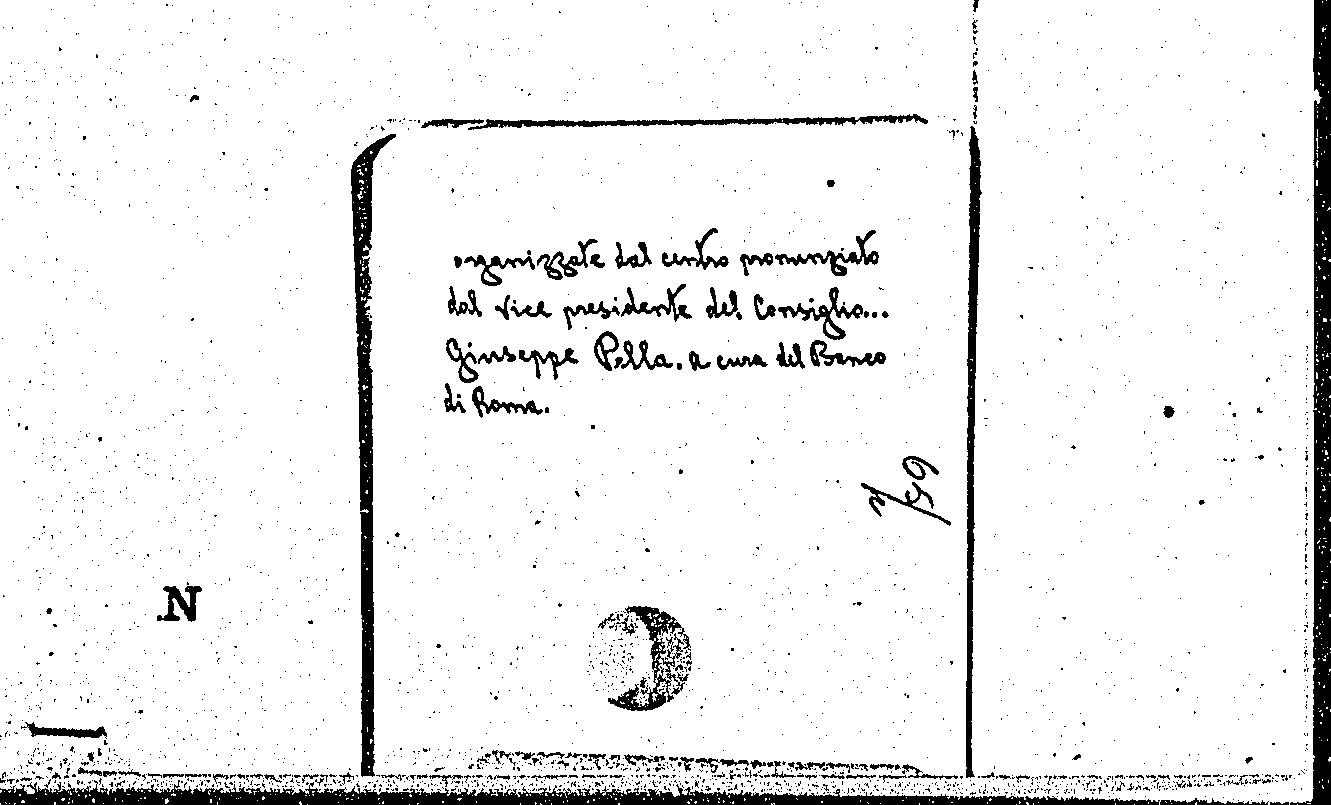 organizzate dal centro pronunziato
dal vice presidente del Consiglio...
Giuseppe Pella. a cura del Banco
di Roma.
N